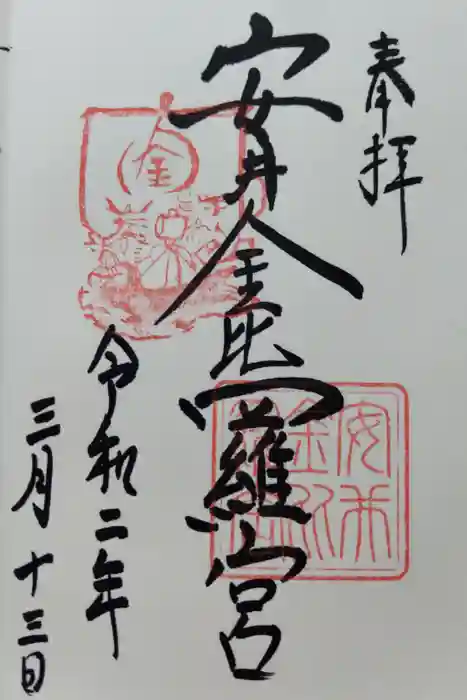 奉拝
安井金比羅宮
令和二年
三月十三日
金
安井